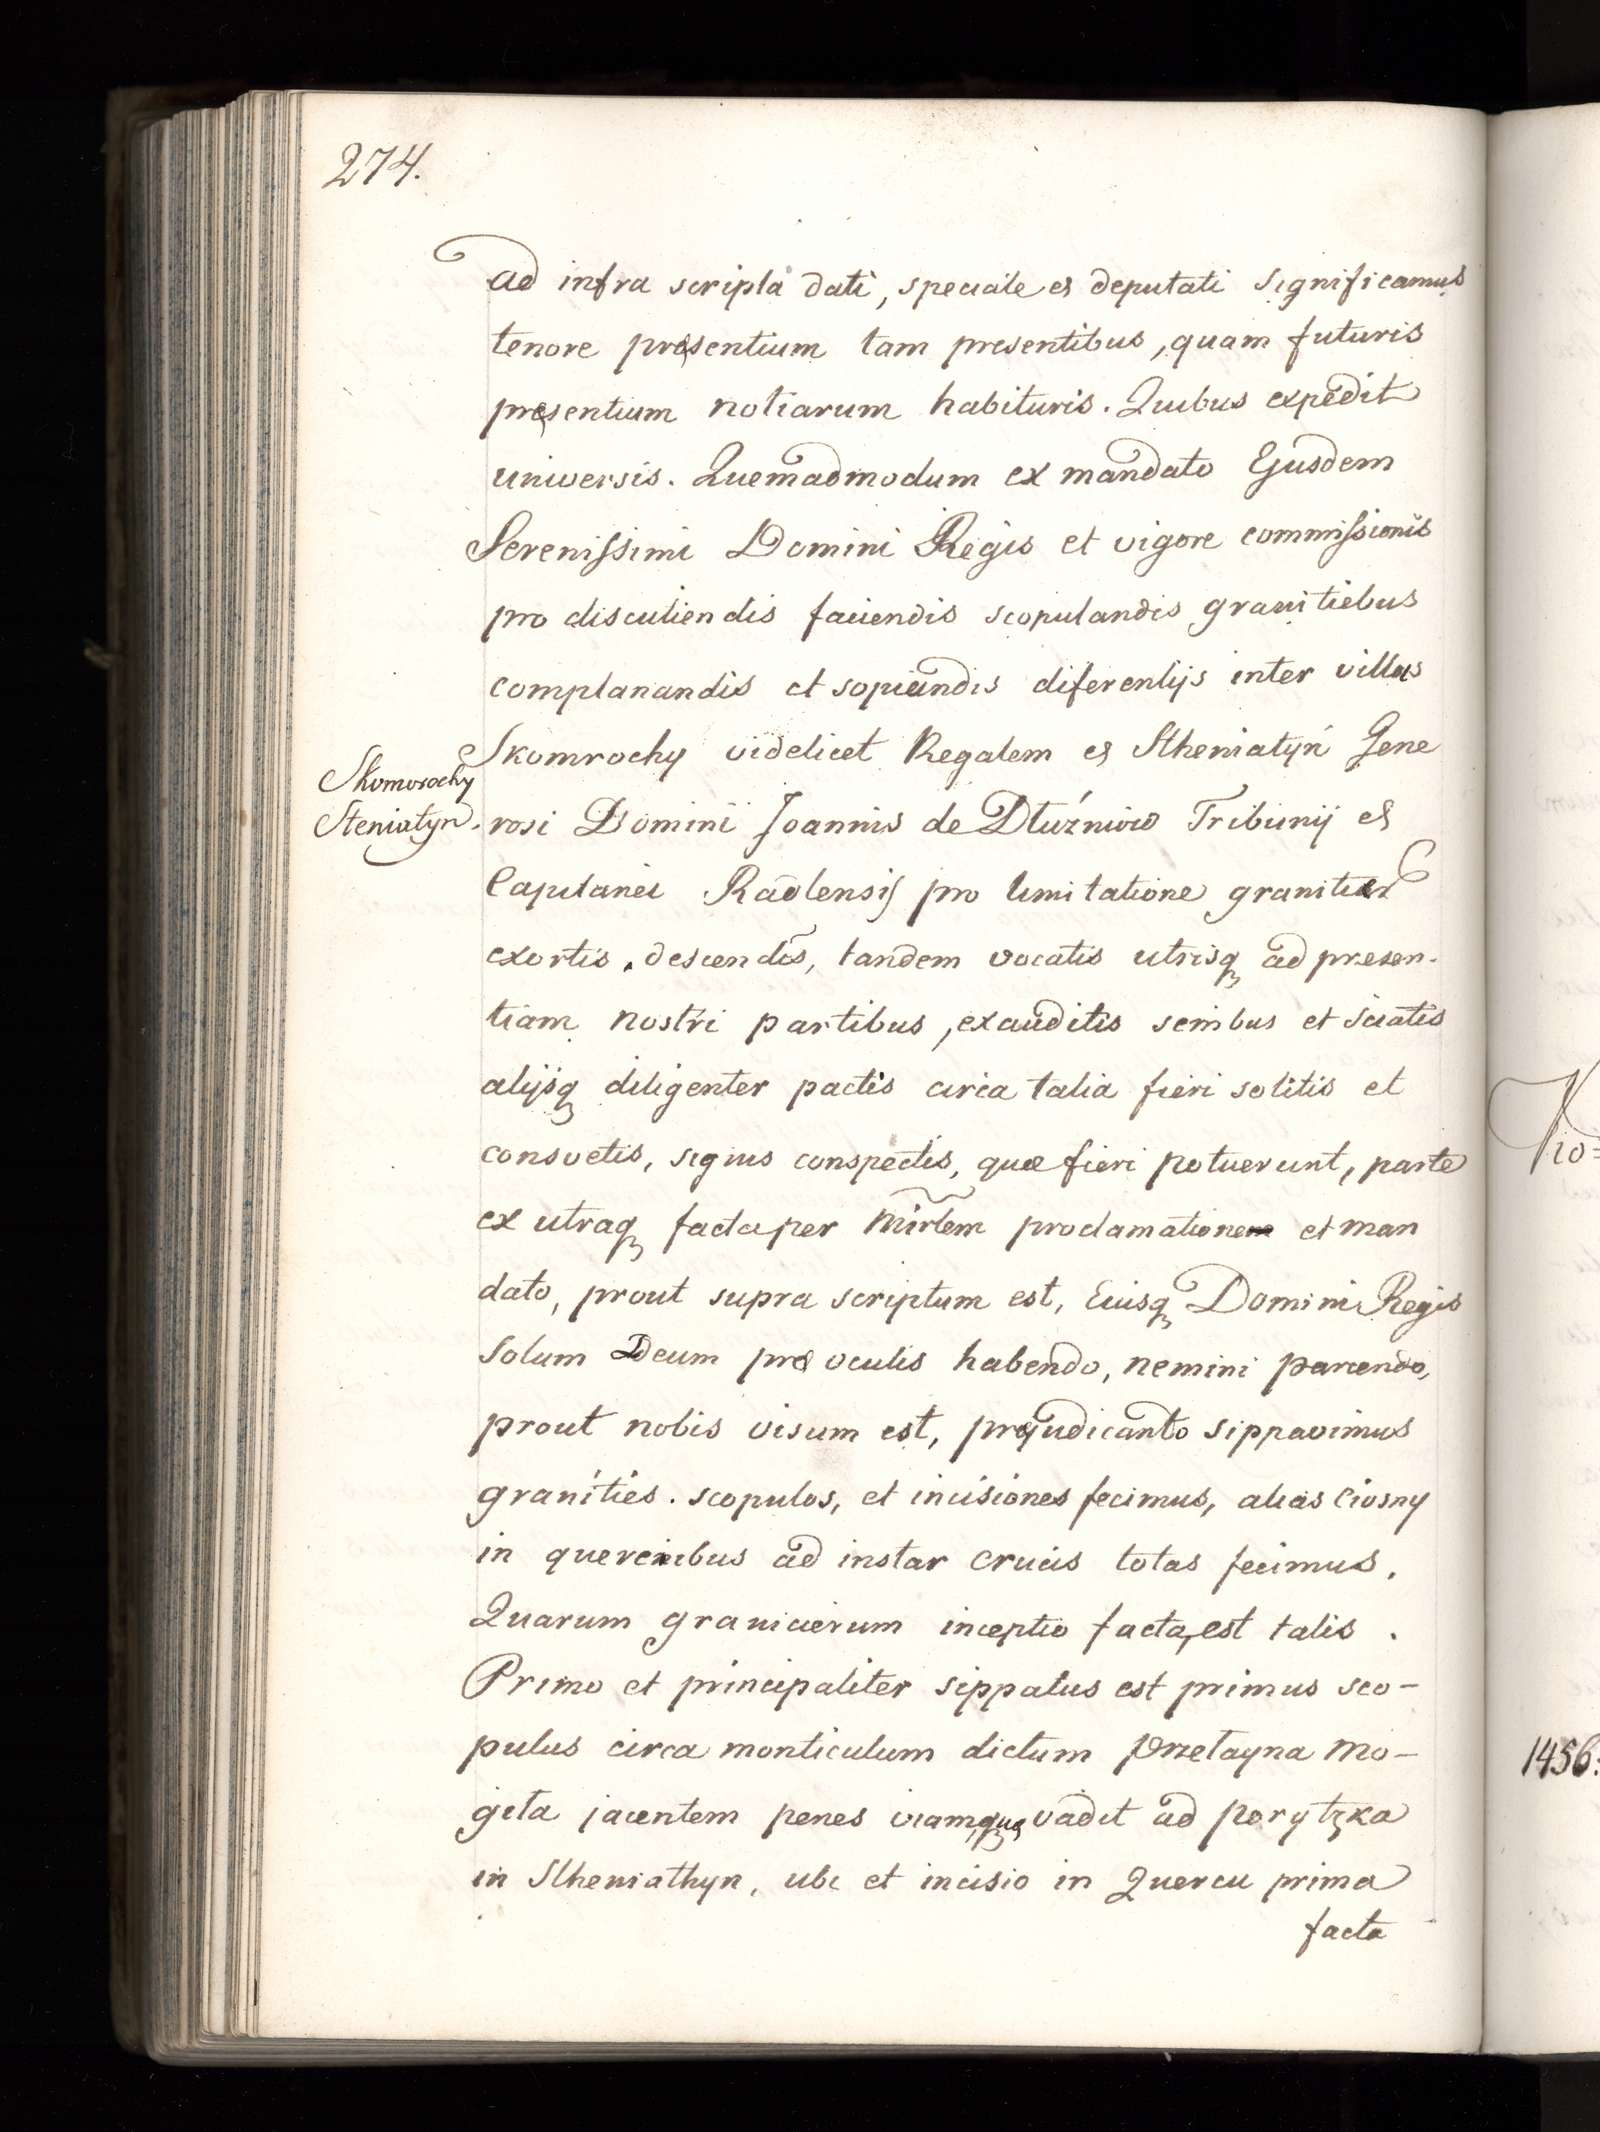 274.
ad infra scripta dati, speciale et deputati significamus
tenore presentium tam presentibus, quam futuris
presentium notiarum habituris. Quibus expedit
universis. Quemadmodum ex mandato Ejusdem
Serenissimi Domini Regis et vigore commissionis
pro discutiendis faciendis scopulandis granitiebus
complanandis et sopiendis diferentijs inter villas
Skomrochy videlicet Regalem et Stheniatyń Gene
Skomorochy
Steniatyn.
rosi Domini Joannis de Dłużniow Tribunij et
Capitanei Radlensis pro limitatione granitier
exortis. descendēs, tandem vocatis utrisq ad presen-
tiam nostri partibus, exauditis senibus et sciatis
alijsq diligenter pactis circa talia fieri solitis et
consvetis, signis conspectis, quæ fieri potuerunt, parte
ex utraq facta per Mirlem proclamatione et man
dato, prout supra scriptum est, Eiusq Domini Regis
Solum Deum præ oculis habendo, nemini parcendo,
prout nobis visum est, prejudicanto sippavimus
granities. scopulos, et incisiones fecimus, alias Ciosny
in quercubus ad instar crucis totas fecimus.
Quarum granicierum inceptio facta est talis.
Primo et principaliter sippatus est primus sco-
pulus circa monticulum dictum Przetayna Mo-
giła jacentem penes viam que vadit ad Porytzka
in Stheniathyn, ubi et incisio in Quercu prima
facta
1456.